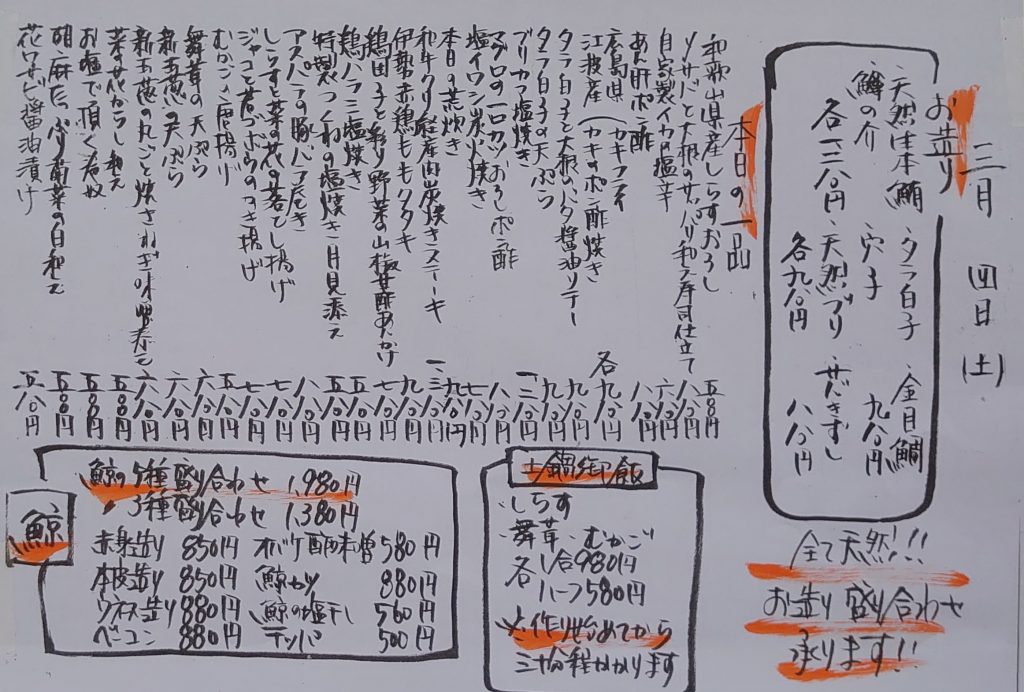 三月 四日(土)
お造り
天然生本鮪 タラ白子 金目鯛
鱒の介 穴子 九八〇円
各一二八〇円 天然ブリ サバきずし
各九八〇円 八八〇円
全て天然!!!
お造り盛り合わせ
承ります!!
本日の一品
和歌山県産しらすおろし 五八〇円
〆サバと大根のサッパリ和え寿司仕立て 八八〇円
自家製イカ塩辛 六八〇円
あん肝ポン酢 八八〇円
広島県 (カキフライ
江波産 (カキのポン酢焼き 各九八〇円
タラ白子と大根のバタ醤油ソテー 九八〇円
タラ白子の天ぷら 九八〇円
ブリカマ塩焼き
マグロの一口カツおろしポン酢
塩イワシ炭火焼き
本日の荒炊き 九八〇円
和牛クリ 炭焼きステーキ
伊勢赤鶏ももタタキ 九八〇円
鶏団子と彩り野菜の山椒甘酢あんかけ 七八〇円
鶏ハラミ塩焼き 五八〇円
特製つくねの塩焼き 月見添え 五八〇円
アスパラの豚バラ巻き 八八〇円
しらすと菜の花の落とし揚げ 七八〇円
ジャコと若ゴボウのかき揚げ 七八〇円
むかご唐揚げ 五八〇円
舞茸の天ぷら 六八〇円
新玉葱の天ぷら 六八〇円
新玉葱の丸ごと焼き ねぎ味噌添え 六八〇円
菜の花からし和え 五八〇円
お塩で頂く名奴 五八〇円
胡麻たっぷり菊菜の白和え 五八〇円
花ワサビ醤油漬け 五八〇円
土鍋御飯
しらす
舞茸 むかご
各 1合980円
ハーフ580円
※作り始めてから
三十分程かかります
鯨
鯨の5種盛り合わせ 1,980円
〃 3種盛り合わせ 1,380円
赤身造り 850円 オバケ酢味噌 580円
本皮造り 850円 鯨カツ 880円
ウネス造り 880円 鯨の塩干し 560円
ベーコン 880円 テッパ 500円